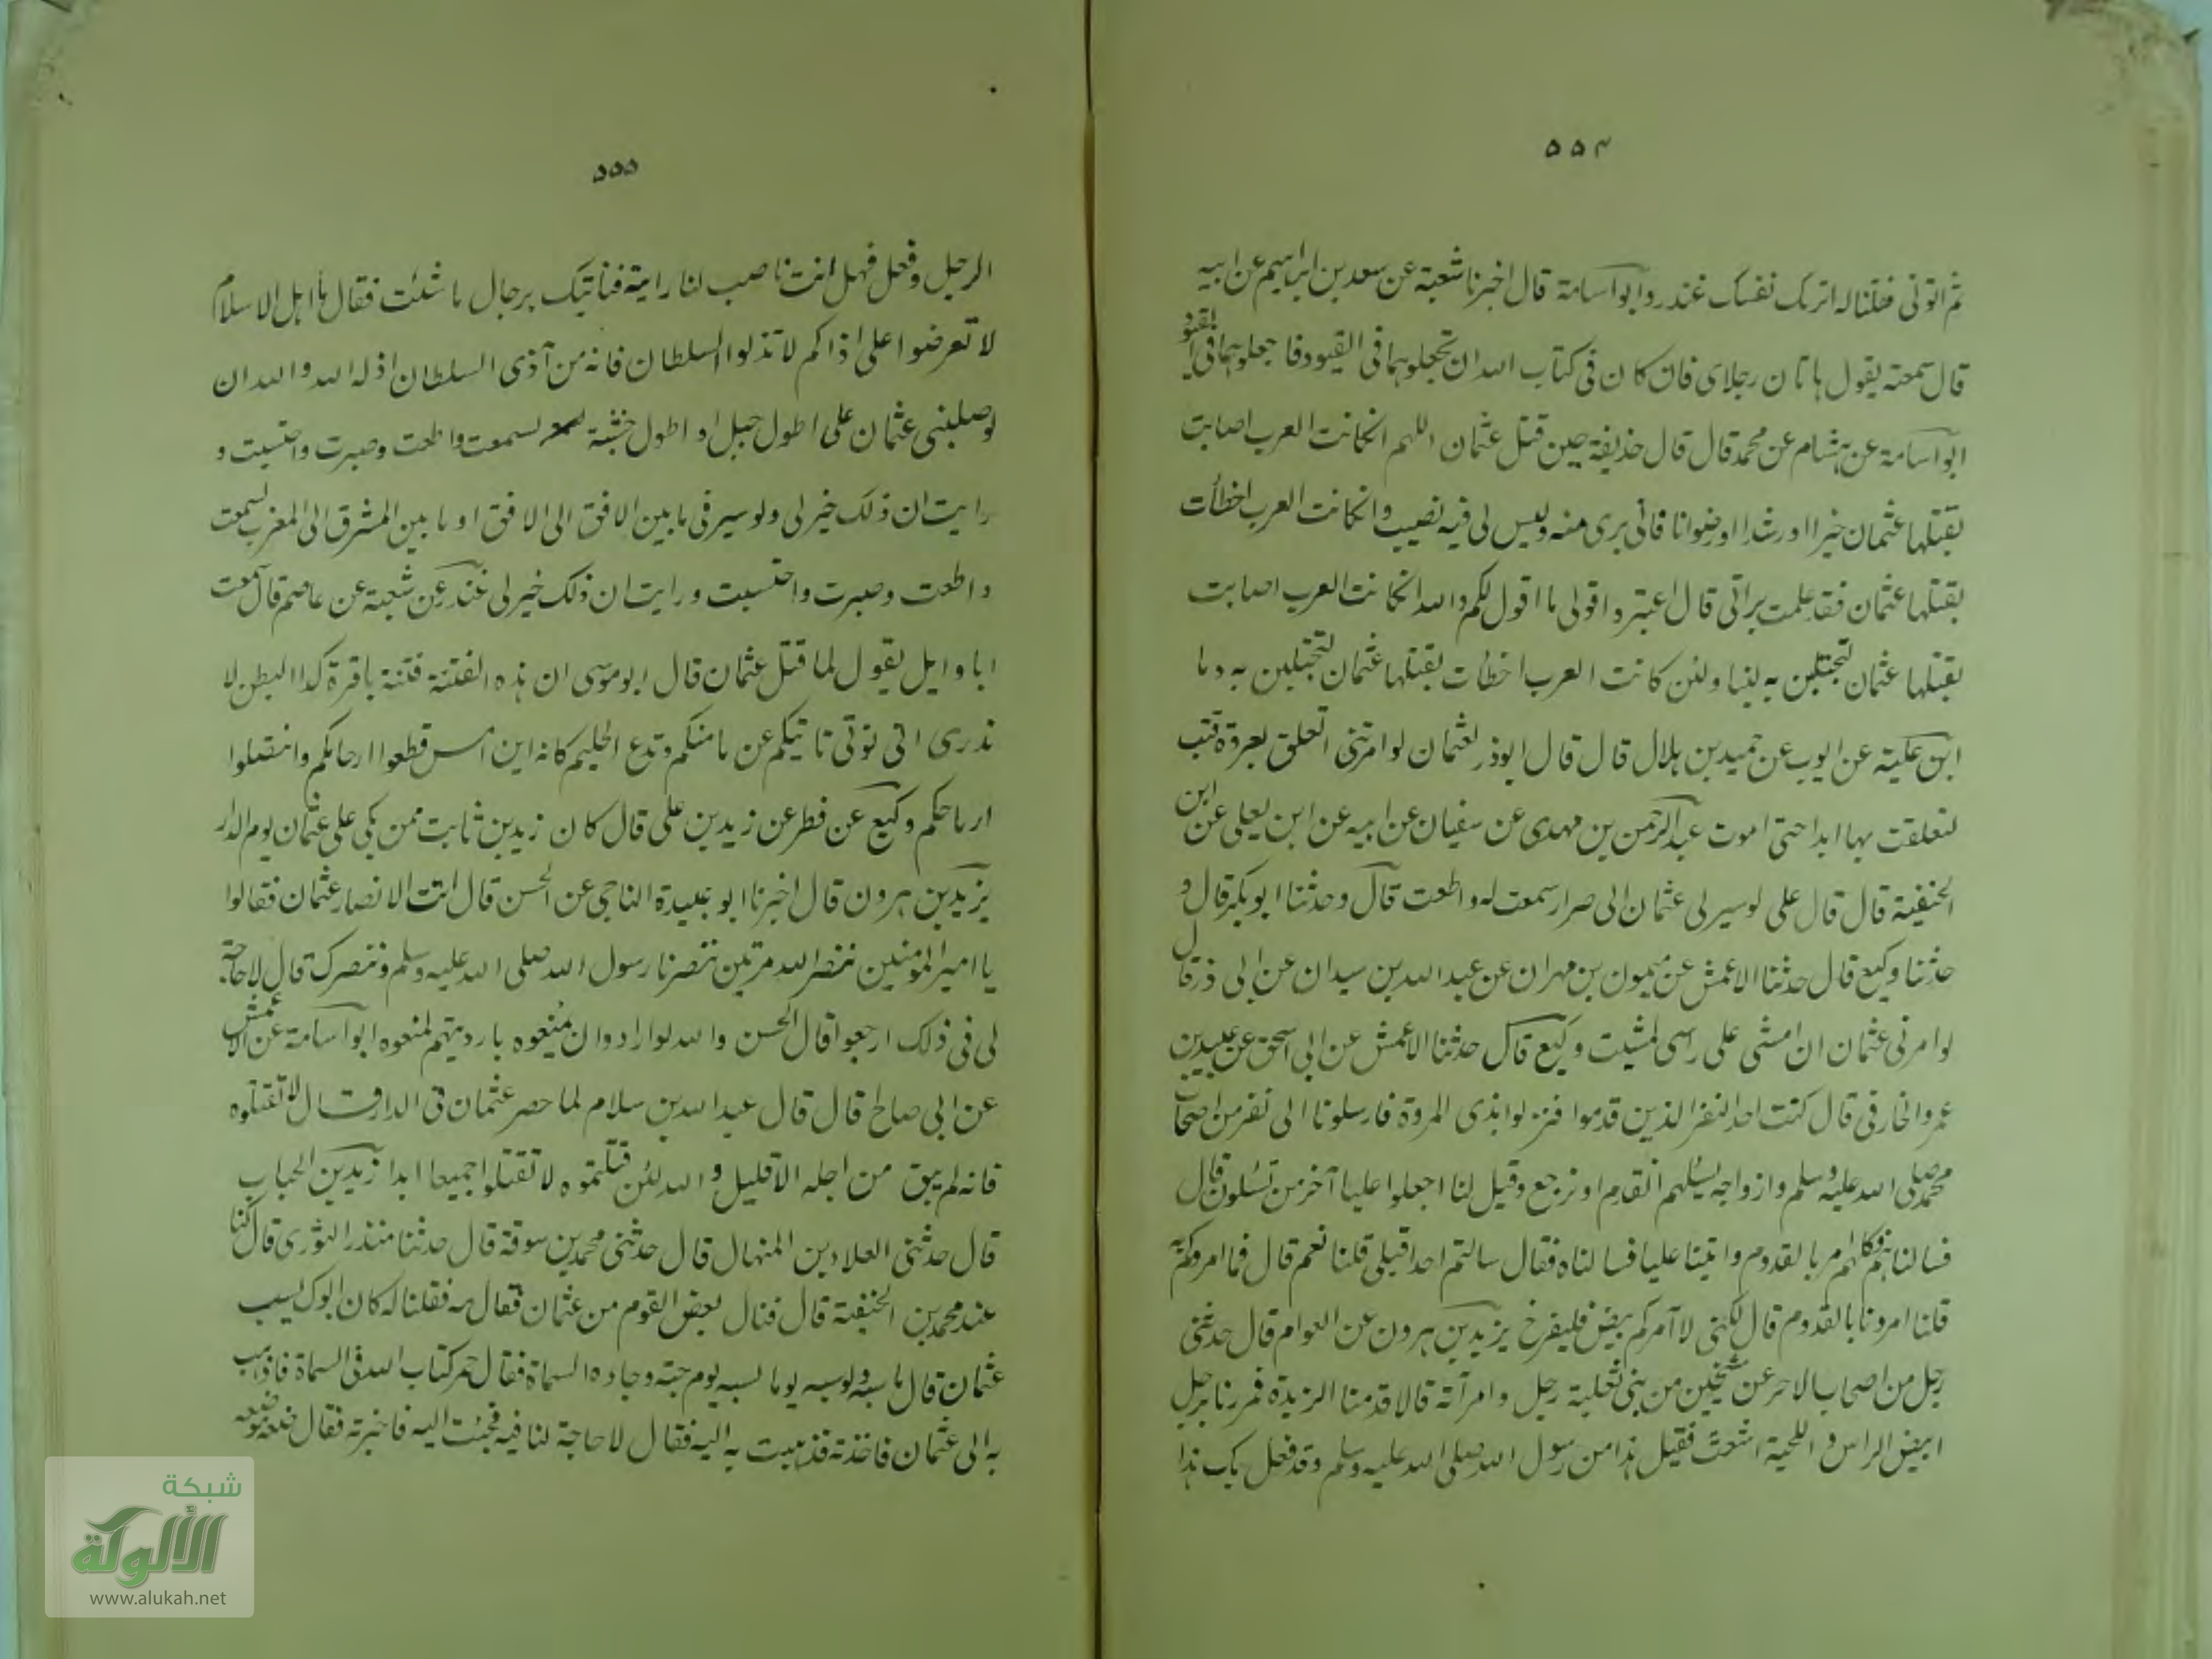 ٥٥٤
ثم اتونى فقلنا له اترك نفسك غندر وابو اسامة قال اخبرنا شعبة عن سعد بن ابراهيم عن ابيه
قال سمعته يقول هاتان رجلاى فان كان فى كتاب الله ان تجعلوهما فى القيود فاجعلوهما فى القيود
ابو اسامة عن هشام عن محمد قال قال حذيفة حين قتل عثمان اللهم ان كانت العرب اصابت
بقتلها عثمان خيرا او رشدا او رضوانا فانى برى منه وليس لى فيه نصيب وان كانت العرب اخطأت
بقتلها عثمان فقد علمت براتى قال اعتبروا قولى ما اقول لكم والله ان كانت العرب اصابت
بقتلها عثمان لتحتلبن به لبنا ولئن كانت العرب اخطأت بقتلها عثمان لتحتلبن به دما
ابن علية عن ايوب عن حميد بن هلال قال قال ابوذر لعثمان لو امرتنى اتعلق بعروة قتب
لتعلقت بها ابدا حتى اموت عبد الرحمن بن مهدى عن سفيان عن ابيه عن ابن يعلى عن ابن
الحنفية قال قال على لو سيرنى عثمان الى صرار سمعت له واطعت قال وحدثنا ابو بكر قال و
حدثنا وكيع قال حدثنا الاعمش عن ميمون بن مهران عن عبد الله بن سيدان عن ابى ذر قال
لو امرنى عثمان ان امشى على راسى لمشيت وكيع قال حدثنا الاعمش عن ابى اسحق عن عبيد بن
عمرو الخارفى قال كنت احد النفر الذين قدموا فنزلوا بذى المروة فارسلونا الى نفر من اصحاب
محمد صلى الله عليه وسلم وازواجه يسئلهم انقدم او نرجع وقيل لنا اجعلوا عليا آخر من تسئلون قال
فسالناهم فكلهم امر بالقدوم واتينا عليا فسالناه فقال سالتم احدا قبلى قلنا نعم قال فما امروكم به
قلنا امرونا بالقدوم قال لكنى لا آمركم بيض فليفرخ يزيد بن هرون عن العوام قال حدثنى
رجل من اصحاب الاحر عن شيخين من بنى ثعلبة رجل وامرأته قالا قدمنا الربذة فمررنا برجل
ابيض الراس و اللحية اشعث فقيل هذا من رسول الله صلى الله عليه وسلم وقد فعل بك هذا
٥٥٥
الرجل وفعل فهل انت ناصب لنا راية فناتيك برجال ما شئت فقال يا اهل الاسلام
لا تعرضوا على اذاكم لا تذلوا السلطان فانه من آذى السلطان اذله الله والله ان
لو صلبنى عثمان على اطول حبل او اطول خشبة لسمعت واطعت وصبرت واحتسبت و
رايت ان ذلك خير لى ولو سيرنى ما بين الافق الى الافق او ما بين المشرق الى المغرب لسمعت
واطعت وصبرت واحتسبت ورايت ان ذلك خير لى غندر عن شعبة عن عاصم قال سمعت
ابا وايل يقول لما قتل عثمان قال ابو موسى ان هذه الفتنة فتنة باقرة كدا البطن لا
تدرى انى توتى تاتيكم عن مامنكم وتدع الحليم كانه ابن امس قطعوا ارحامكم وانتصلوا
ارماحكم وكيع عن فطر عن زيد بن على قال كان زيد بن ثابت ممن بكى على عثمان يوم الدار
يزيد بن هرون قال اخبرنا ابو عبيدة الناجى عن الحسن قال اتت الانصار عثمان فقالوا
يا امير المؤمنين ننصر الله مرتين نصرنا رسول الله صلى الله عليه وسلم وننصرك قال لا حاجة
لى فى ذلك ارجعوا قال الحسن والله لو ارادوا ان يمنعوه بارديتهم لمنعوه ابو اسامة عن الاعمش
عن ابى صالح قال قال عبد الله بن سلام لما حصر عثمان فى الدار قال لا تقتلوه
فانه لم يبق من اجله الا قليل و الله لئن قتلتموه لا تقتلوا جميعا ابدا زيد بن الحباب
قال حدثنى العلاء بن المنهال قال حدثنى محمد بن سوقة قال حدثنا منذر الثورى قال كنا
عند محمد بن الحنفية قال فنال بعض القوم من عثمان فقال مه فقلنا له كان ابوك يسب
عثمان قال ما سبه ولو سبه يوما لسبه يوم جئته وجاءه السعاة فقال خذ كتاب الله فى السعاة فاذهب
به الى عثمان فاخذته فذهبت به اليه فقال لا حاجة لنا فيه فجئت اليه فاخبرته فقال ضعه موضعه
شبكة
الألوكة
www.alukah.net